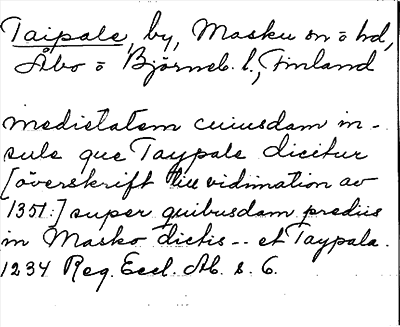 Taipale, by, Masku sn o hd,
Åbo o Björneb. l., Finland
medietatem cuiusdam in-
sule que Taypale dicitur
[överskrift till vidimation av
1351:] super quibusdam prediis
in Masko dictis -- et Taypala.
1234 Reg. Eccl. Ab. s. 6.